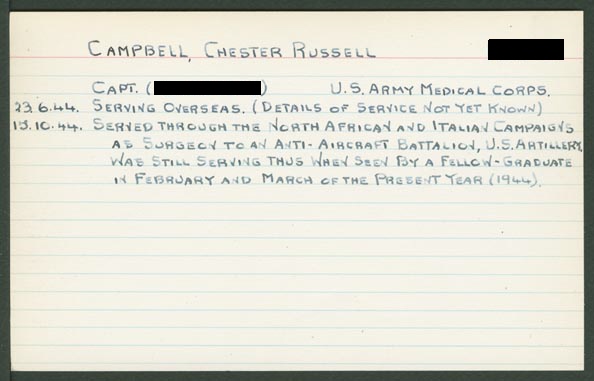 CAMPBELL, CHESTER RUSSELL
CAPT. ( ) U.S. ARMY MEDICAL CORPS.
23.6.44. SERVING OVERSEAS. (DETAILS OF SERVICE NOT YET KNOWN)
15.10.44. SERVED THROUGH THE NORTH AFRICAN AND ITALIAN CAMPAIGNS
AS SURGEON TO AN ANTI-AIRCRAFT BATTALION, U.S. ARTILLERY.
WAS STILL SERVING THUS WHEN SEEN BY A FELLOW-GRADUATE
IN FEBRUARY AND MARCH OF THE PRESENT YEAR (1944).